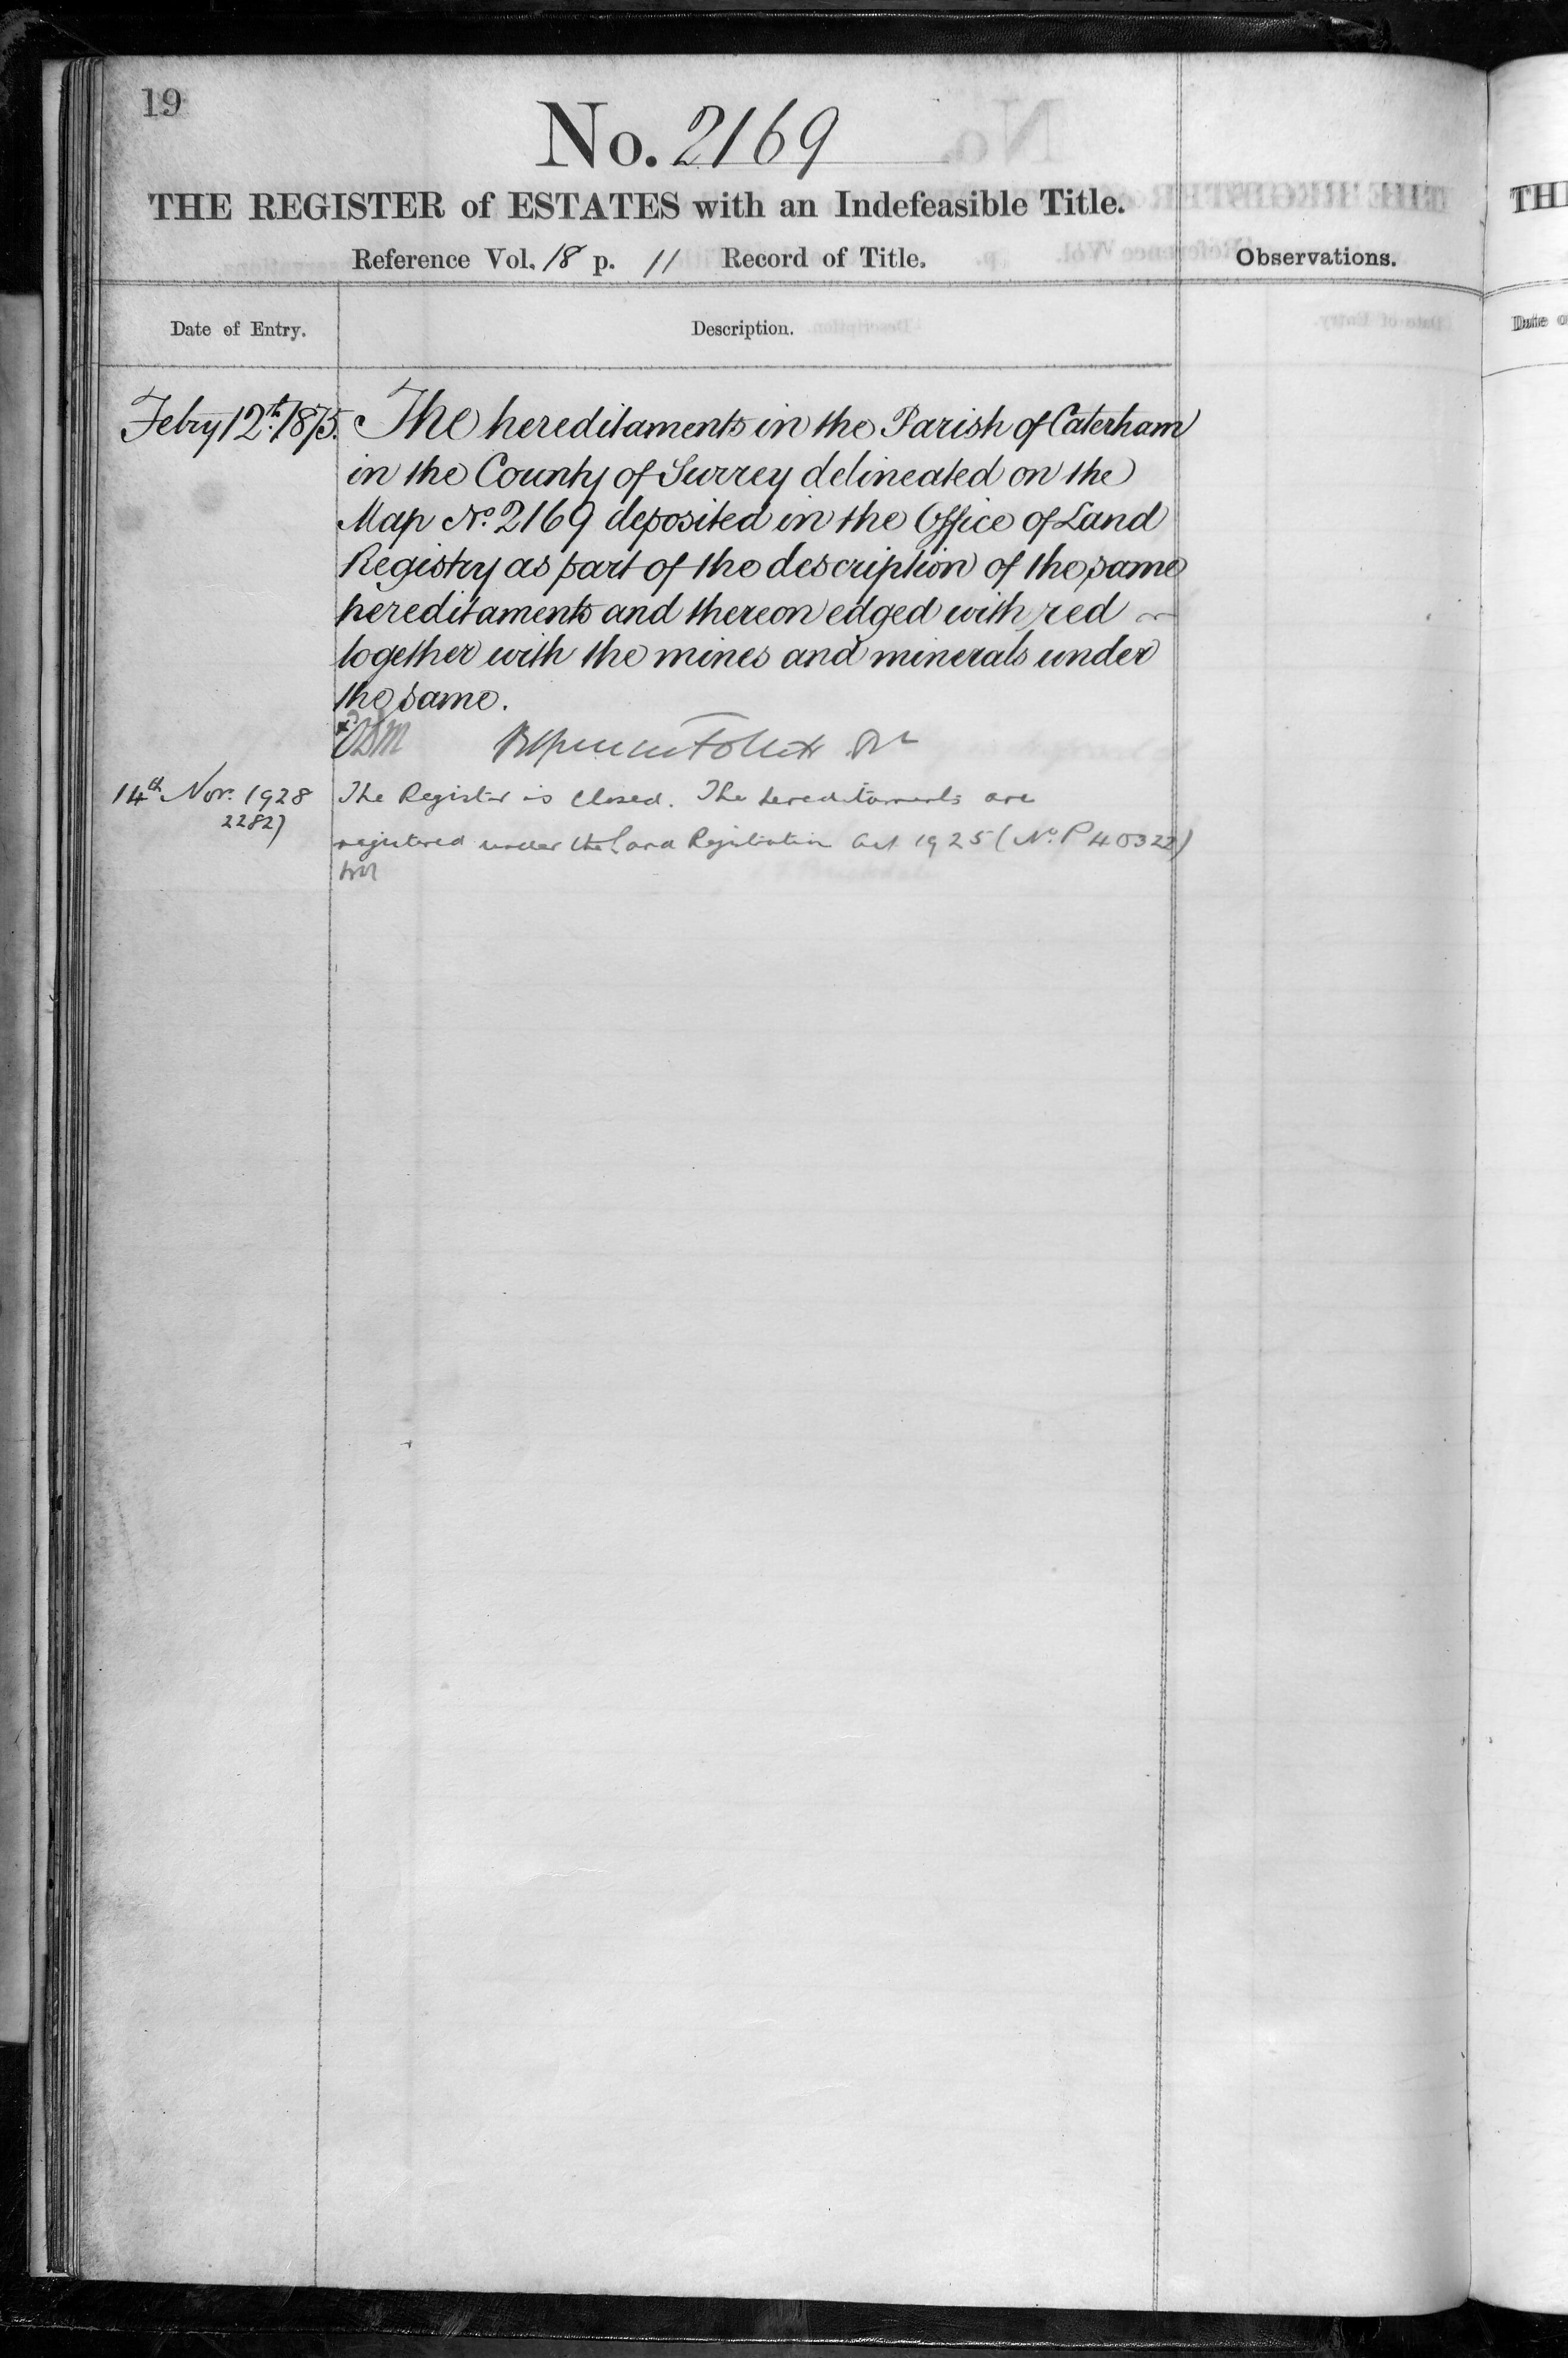 19
No. 2169
THE REGISTER of ESTATES with an Indefeasible Title.
Reference Vol. 18 p. 11 Record of Title.
Observations.
Date of Entry.
Description.
Febry 12th. 1875.
The hereditaments in the Parish of Caterham
in the County of Surrey delineated on the
Map No. 2169 deposited in the Office of Land
Registry as part of the description of the same
hereditaments and thereon edged with red
together with the mines and minerals under
the same.
14th Nov. 1928
22827
The Register is closed. The hereditaments are
registered under the Land Registration Act 1925 (No. P 40322)
TH
Date o